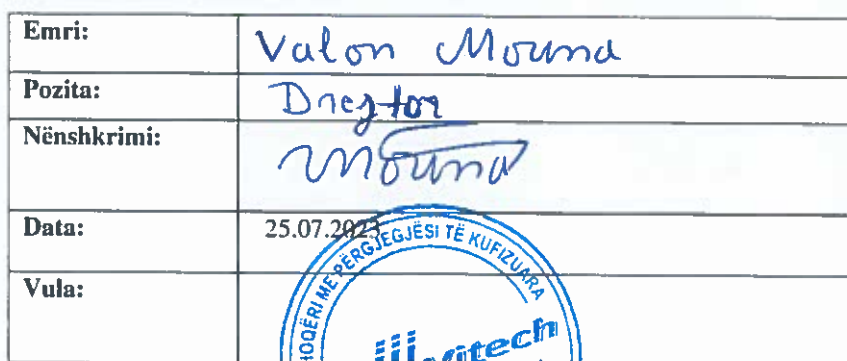 Emri: Valon Morina
Pozita: Drejtor
Nënshkrimi:
Data: 25.07.2023
Vula:
SHOQËRI ME PËRGJEGJËSI TË KUFIZUARA